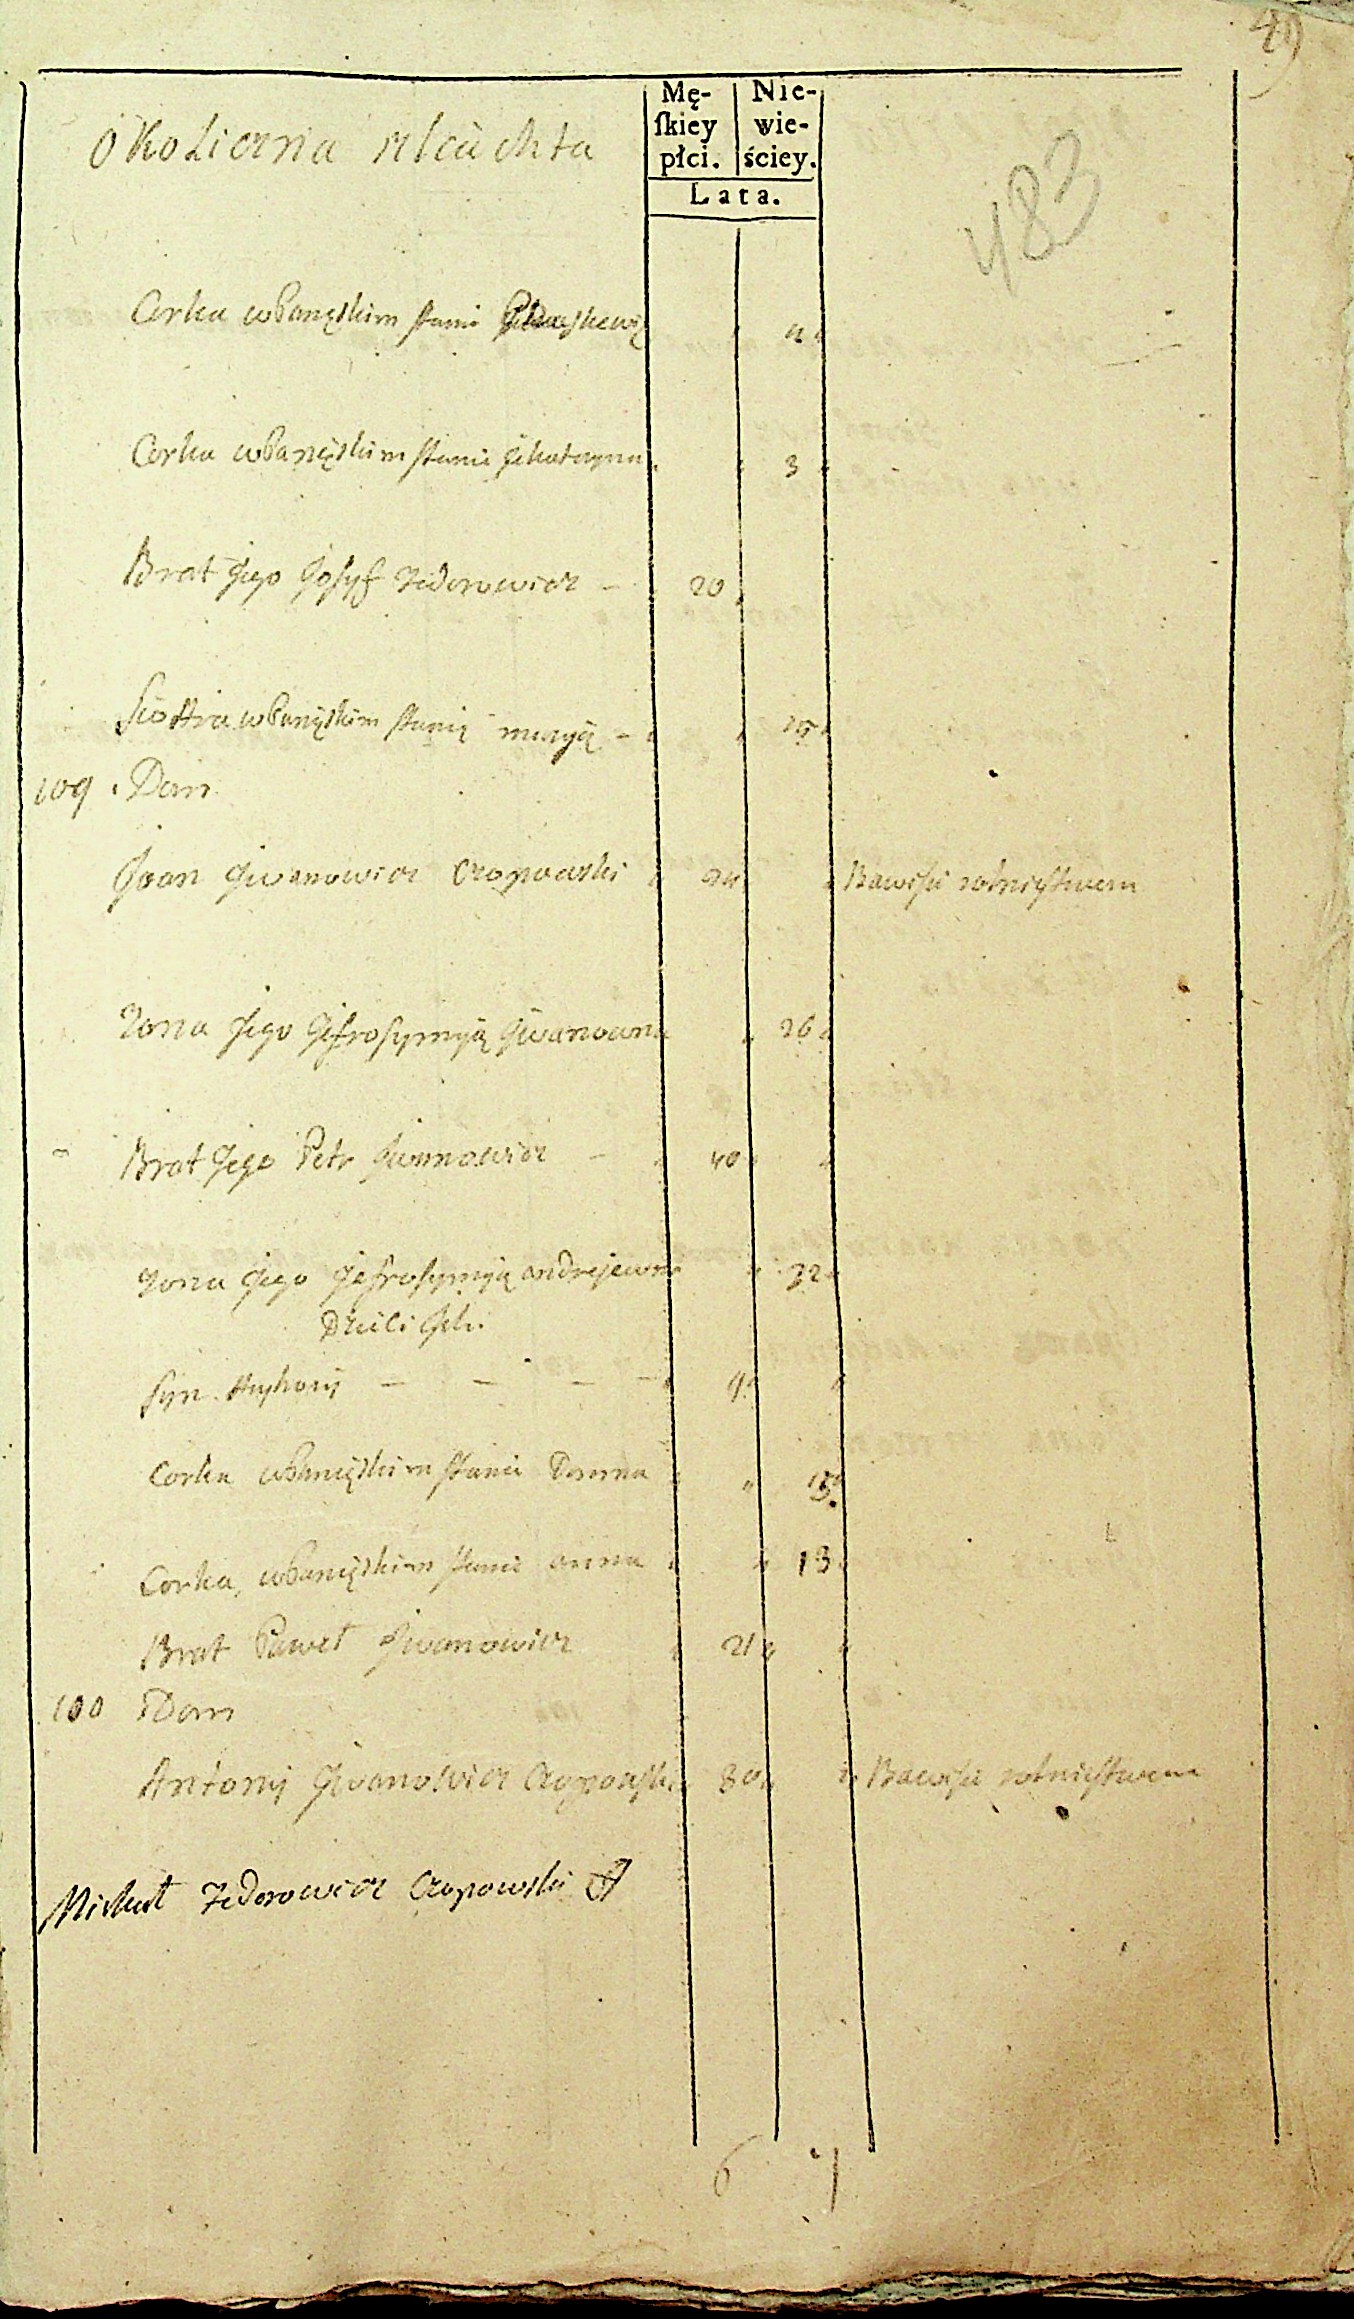 49
483
okoliczna szlachta
Mę-skiey płci.
Nie-wie-ściey.
Lata.
Corka w Panęskim stanie 4
Corka w Panęskim stanie Jekateryna 3
Brat Jego Josyf Fedorowicz 20
Siostra w Panęskim stanię maryja
109 Dom
Jwan Jwanowicz Czopowski 34 Bawisie rolnictwem
Żona Jego Jefrosymija Jwanowna 26
Brat Jego Petr Jwanowicz 40
Żona Jego Jefrosymija andrejewna 32
Dzieci Jch:
Syn 9
Corka w Panęskim stanie Domna 15
Corka, w Panęskim stanie anna 13
Brat Paweł Jwanowicz 21
100 Dom
Antonij Jwanowicz Czopowski 30 Bawisie rolnictwem
Michał Fedorowicz Czopowski
6 7